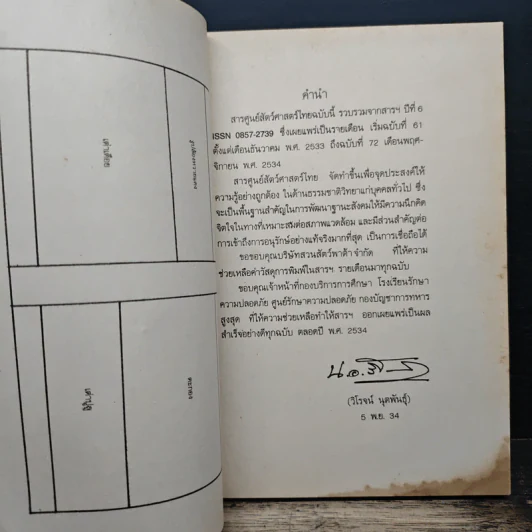 คำนำ
สารศูนย์สัตว์ศาสตร์ไทยฉบับนี้ รวบรวมจากสารฯ ปีที่ 6
ISSN 0857-2739 ซึ่งเผยแพร่เป็นรายเดือน เริ่มฉบับที่ 61
ตั้งแต่เดือนธันวาคม พ.ศ. 2533 ถึงฉบับที่ 72 เดือนพฤศ-
จิกายน พ.ศ. 2534
สารศูนย์สัตว์ศาสตร์ไทย จัดทำขึ้นเพื่อจุดประสงค์ให้
ความรู้อย่างถูกต้อง ในด้านธรรมชาติวิทยาแก่บุคคลทั่วไป ซึ่ง
จะเป็นพื้นฐานสำคัญในการพัฒนาฐานะสังคมให้มีความนึกคิด
จิตใจในทางที่เหมาะสมต่อสภาพแวดล้อม และมีส่วนสำคัญต่อ
การเข้าถึงการอนุรักษ์อย่างแท้จริงมากที่สุด เป็นการเชื่อถือได้
ขอขอบคุณบริษัทสวนสัตว์พาต้า จำกัด ที่ให้ความ
ช่วยเหลือค่าวัสดุการพิมพ์ในสารฯ รายเดือนมาทุกฉบับ
ขอบคุณเจ้าหน้าที่กองบริการการศึกษา โรงเรียนรักษา
ความปลอดภัย ศูนย์รักษาความปลอดภัย กองบัญชาการทหาร
สูงสุด ที่ให้ความช่วยเหลือทำให้สารฯ ออกเผยแพร่เป็นผล
สำเร็จอย่างดีทุกฉบับ ตลอดปี พ.ศ. 2534
(วิโรจน์ นุตพันธุ์)
5 พ.ย. 34